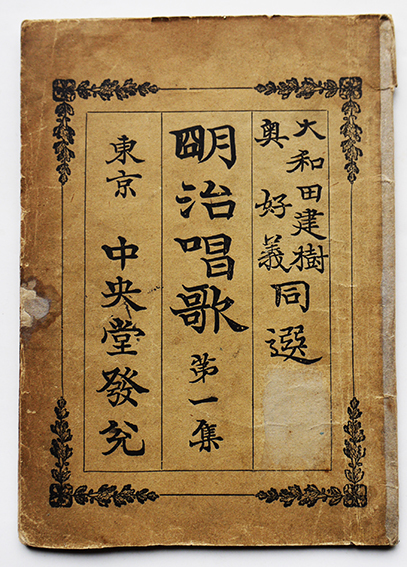 大和田建樹
奥好義 同選
明治唱歌 第一集
東京 中央堂發兌